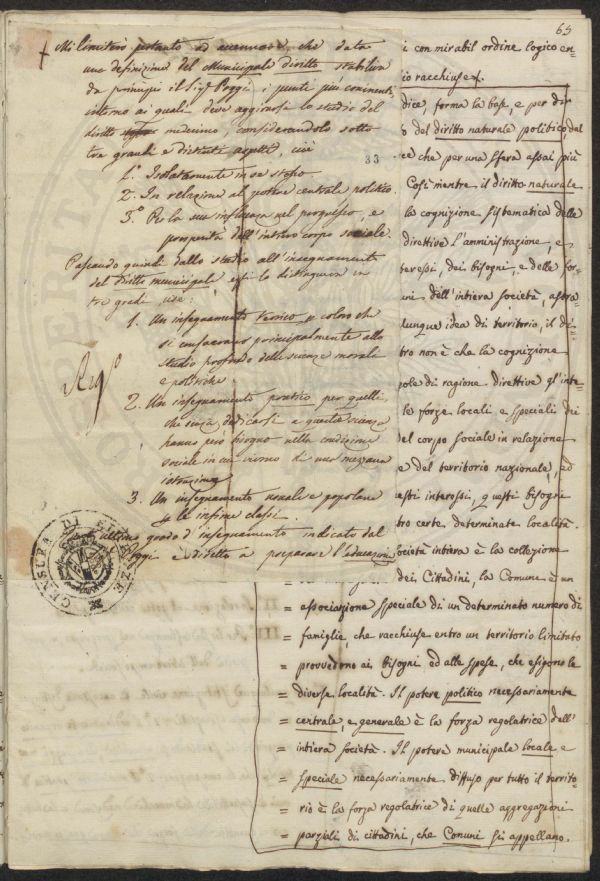 65
Mi limiterò pertanto ad accennare, che data
una definizione del Municipale diritto stabilisce
da principii il Sig. Poggi, i punti più eminenti
intorno ai quali deve aggirarsi lo studio del
diritto medesimo, considerandolo sotto
tre grandi e distinti aspetti, cioè
33
1.° Isolatamente in se stesso
2. In relazione al potere centrale politico.
3. Per la sua influenza nel progresso, e
prosperità dell'intiero corpo sociale.
Passando quindi dallo studio all'insegnamento
del diritto municipale, egli lo distingue in
tre gradi, cioè:
1. Un insegnamento teorico p coloro che
si consacrano principalmente allo
studio profondo delle scienze morali
e politiche
2. Un insegnamento pratico per quelli,
che senza dedicarsi a questa scienza
hanno però bisogno nella condizione
sociale in cui vivono di una mezzana
istruzione
3. Un insegnamento morale e popolare
p le infime classi.
ultimo grado d'insegnamento indicato dal
Poggi è diretto a preparare l'educazione
CENSURA DI FIRENZE
i con mirabil ordine logico en=
io racchiuse
dice, forma la base, e per dir
o del diritto naturale politico dal
ce che per una sfera assai più
Così mentre il diritto naturale
la cognizione sistematica delle
direttive l'amministrazione, e
teressi, dei bisogni, e delle for=
uni dell'intiera società, astra
lunque idea di territorio, il di=
tro non è che la cognizione
pole di ragione direttive gl'inte=
le forze locali e speciali dei
del corpo sociale in relazione
e del territorio nazionale, ed
uesti interessi, questi bisogni
tro certe determinate località.
Società intiera è la collezione
dei Cittadini, la Comune è un
= associazione speciale di un determinato numero di
= famiglie, che racchiuse entro un territorio limitato
= provvedono ai bisogni ed alle spese, che esigono le
= diverse località. Il potere politico necessariamente
= centrale, e generale è la forza regolatrice dell'
= intiera società. Il potere municipale locale e
= speciale necessariamente diffuso per tutto il territo=
= rio è la forza regolatrice di quelle aggregazioni
= parziali di cittadini, che Comuni si appellano.